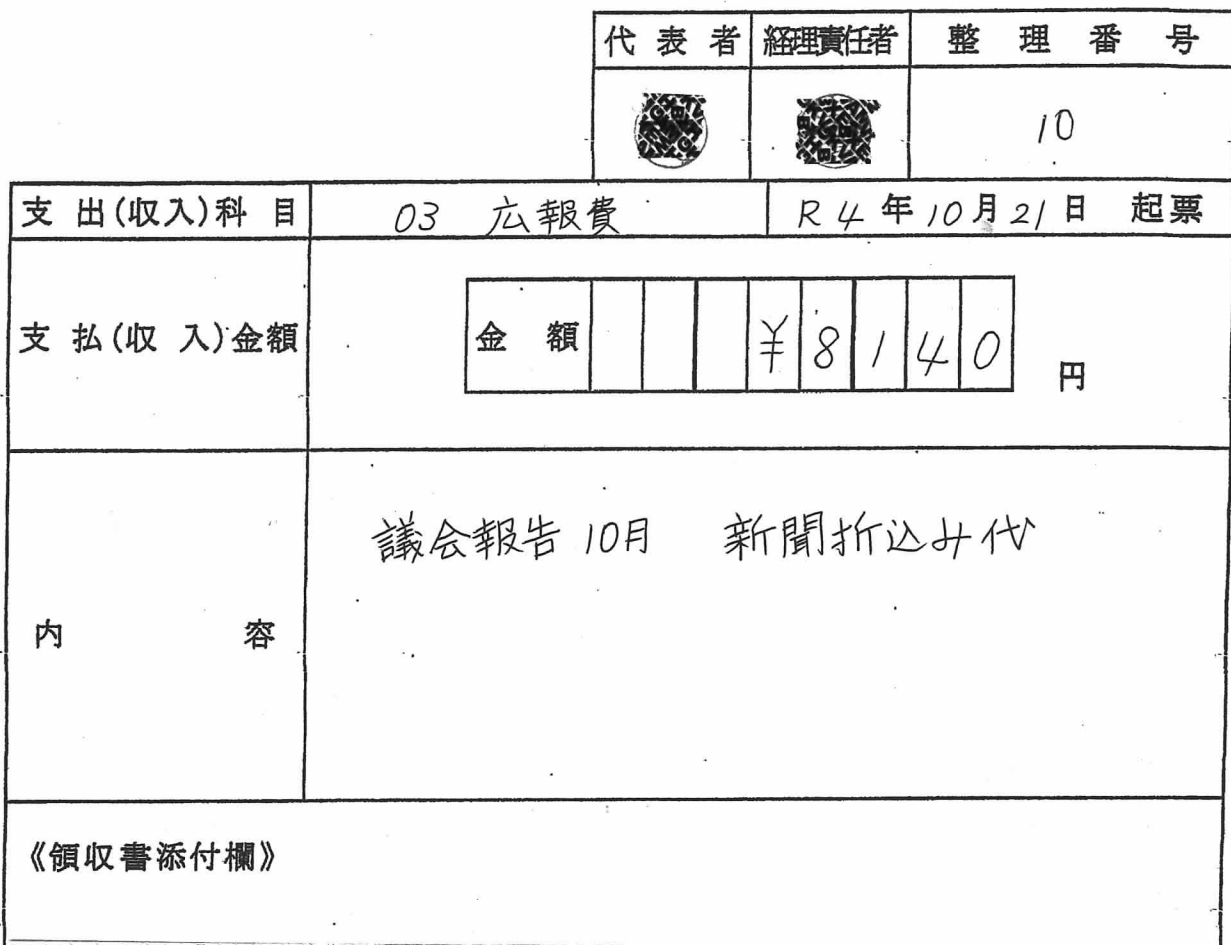 代表者 経理責任者 整理番号
10
支出(収入)科目 03 広報費 R4年10月21日 起票
支払(収入)金額 金額 ¥8140 円
議会報告10月 新聞折込み代
内容
《領収書添付欄》